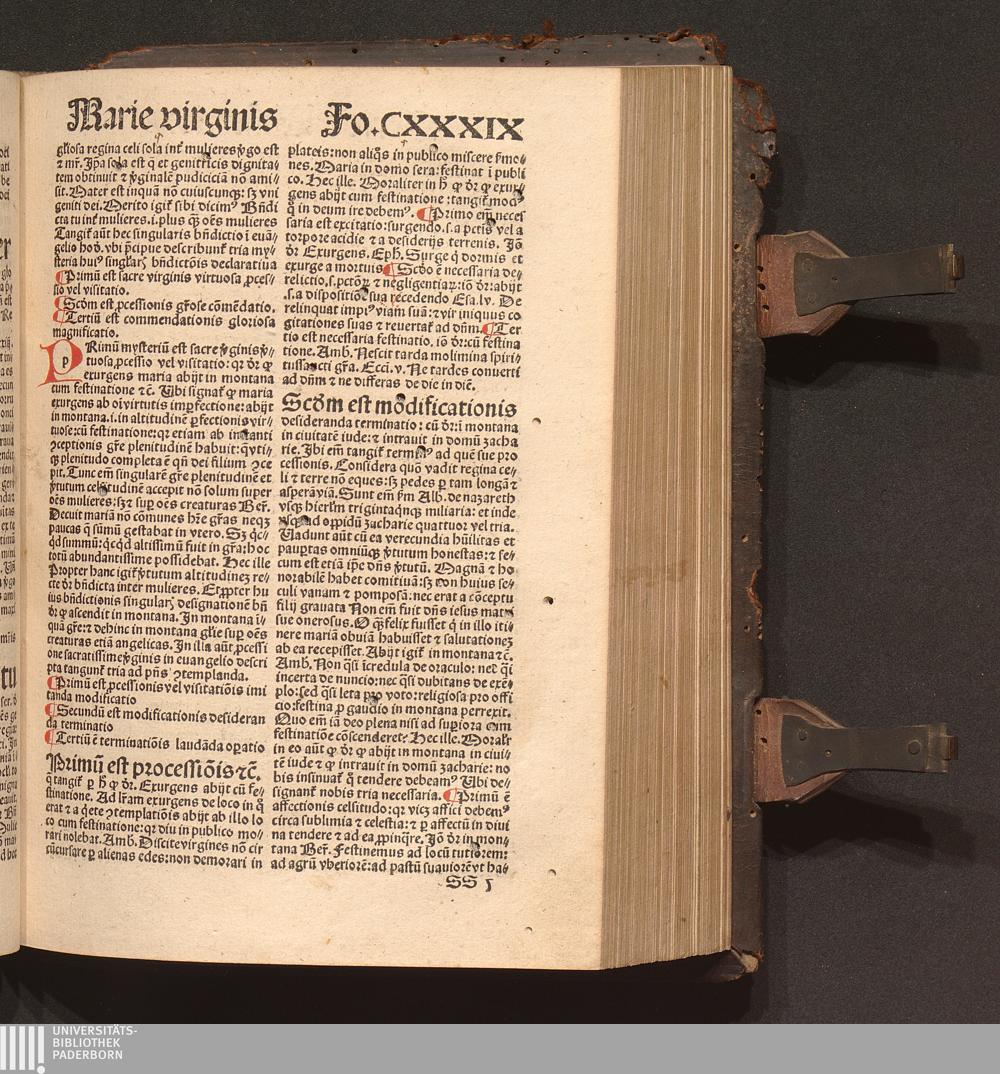 Marie virginis
Fo. CXXXIX
gl'iosa regina celi sola int' mulieres v'go est
⁊ mr̄. Ip̄a sola est q̄ et genitricis dignita-
tem obtinuit ⁊ v'ginalē pudiciciā nō ami-
sit. Mater est inquā nō cuiuscunqꝫ: sꝫ vni
geniti dei. Merito igit' sibi dicimꝰ Bn̄di
cta tu int' mulieres .i. plus q̄ȝ oēs mulieres
Tangit' aūt hec singularis bn̄dictio ī euā-
gelio hod'. vbi p̄ncipue describunt' tria my-
steria huiꝰ singlar' bn̄dictōis declaratiua
¶ Primū est sacre virginis virtuosa ꝓces-
sio vel visitatio.
¶ Scd'm est ꝓcessionis gl'ose cōmēdatio.
¶ Tertiū est commendationis gloriosa
magnificatio.
PRimū mysteriū est sacre v'ginis v'-
tuosa ꝓcessio vel visitatio: qꝛ dr̄ ꝙ
exurgens maria abijt in montana
cum festinatione ⁊c̄. Ubi signat' ꝙ maria
exurgens ab oī virtutis imꝑfectione: abijt
in montana .i. in altitudinē ꝑfectionis vir-
tuose: cū festinatione: qꝛ etiam ab instanti
ꝯceptionis gr̄e plenitudinē habuit: q̄ vti-
qꝫ plenitudo completa ē qn̄ dei filium ꝯce
pit. Tunc em̄ singularē gr̄e plenitudinē et
v'tutum celsitudinē accepit nō solum super
oēs mulieres: sꝫ ⁊ suꝑ oēs creaturas Ber̄.
Decuit mariā nō cōmunes h̄re gr̄as neqꝫ
paucas q̄ sūmū gestabat in vtero. Sꝫ qc̄-
qd summū: qcqd altissimū fuit in gr̄a: hoc
totū abundantissime possidebat. Hec ille
Propter hanc igit' v'tutum altitudineꝫ re-
cte dr̄ bn̄dicta inter mulieres. Et ꝓpter hu
ius bn̄dictionis singular' designationē bn̄
dr̄ ꝙ ascendit in montana. In montana ī-
quā gr̄e: ⁊ dehinc in montana gl'ie suꝑ oēs
creaturas etiā angelicas. In illa aūt ꝓcessi
one sacratissime v'ginis in euangelio descri
pta tangunt' tria ad pn̄s ꝯtemplanda.
¶ Primū est ꝓcessionis vel visitatiōis imi
tanda modificatio
¶ Secundū est modificationis desideran
da terminatio
¶ Tertiū ē terminatiōis laudāda oꝑatio
Primū est processiōis ⁊c̄.
q̄ tangit' ꝑ h̄ ꝙ dr̄. Exurgens abijt cū fe-
stinatione. Ad lr̄am exurgens de loco in q̄
erat ⁊ a q'ete ꝯtemplatiōis abijt ab illo lo
co cum festinatione: qꝛ diu in publico mo-
rari nolebat. Amb. Discite virgines nō cir
cūcursare ꝑ alienas edes: non demorari in
plateis: non aliq̄s in publico miscere s'mo-
nes. Maria in domo sera: festinat ī publi
co. Hec ille. Moraliter in h̄ ꝙ dr̄ ꝙ exur-
gens abijt cum festinatione: tangit' modꝰ
q̄ in deum ire debemꝰ. ¶ Primo em̄ neces
saria est excitatio: surgendo .s. a pctis vel a
torpore acidie ⁊ a desiderijs terrenis. Iō
dr̄ Exurgens. Eph'. Surge q̄ dormis et
exurge a mortuis ¶ Scd'o ē necessaria de-
relictio .s. pctōꝝ ⁊ negligentiaꝝ: iō dr̄: abijt
.s. a dispositiōe sua recedendo Esa. lv. De
relinquat impiꝰ viam suā: ⁊ vir iniquus co
gitationes suas ⁊ reuertat' ad dn̄m. ¶ Ter
tio est necessaria festinatio. iō dr̄: cū festina
tione. Amb. Nescit tarda molimina spiri-
tussancti gr̄a. Ecci. v. Ne tardes conuerti
ad dn̄m ⁊ ne differas de die in diē.
Scd'm est modificationis
desideranda terminatio: cū dr̄: ī montana
in ciuitatē iude: ⁊ intrauit in domū zacha
rie. Ibi em̄ tangit' terminꝰ ad quē sue pro
cessionis. Considera quō vadit regina ce-
li ⁊ terre nō eques: sꝫ pedes ꝑ tam longā ⁊
asperā viā. Sunt em̄ s'm Alb. de nazareth
vsqꝫ hierl'm trigintaqnqꝫ miliaria: et inde
vsqꝫ ad oppidū zacharie quattuor vel tria.
Uadunt aūt cū ea verecundia hūilitas et
pauꝑtas omniūqꝫ v'tutum honestas: ⁊ se-
cum est etiā ip̄e dn̄s v'tutū. Magnā ⁊ ho
norabilē habet comitiuā: sꝫ non huius se-
culi vanam ⁊ pomposā: nec erat a cōceptu
filij grauata Non em̄ fuit dn̄s iesus matri
sue onerosus. O q̄ȝ felix fuisset q̄ in illo iti-
nere mariā obuiā habuisset ⁊ salutationeꝫ
ab ea recepisset. Abijt igit' in montana ⁊c̄.
Amb. Non q̄si īcredula de oraculo: nec q̄i
incerta de nuncio: nec q̄si dubitans de exē-
plo: sed q̄si leta pro voto: religiosa pro offi
cio: festina ꝑ gaudio in montana perrexit.
Quo em̄ iā deo plena nisi ad suꝑiora cum
festinatiōe cōscenderet? Hec ille. Moralr̄
in eo aūt ꝙ dr̄ ꝙ abijt in montana in ciui-
tē iude ⁊ ꝙ intrauit in domū zacharie: no
bis insinuat' q̄ tendere debeamꝰ Ubi de-
signant' nobis tria necessaria. ¶ Primū ē
affectionis celsitudo: qꝛ vicꝫ affici debemꝰ
circa sublimia ⁊ celestia: ⁊ ꝑ affectū in diui
na tendere ⁊ ad ea ꝓpinq̄re. Iō dr̄ in mon-
tana Ber̄. Festinemus ad locū tutiorem:
ad agrū vberiorē: ad pastū suauiorē vt ha-
SS 1
UNIVERSITÄTS-
BIBLIOTHEK
PADERBORN